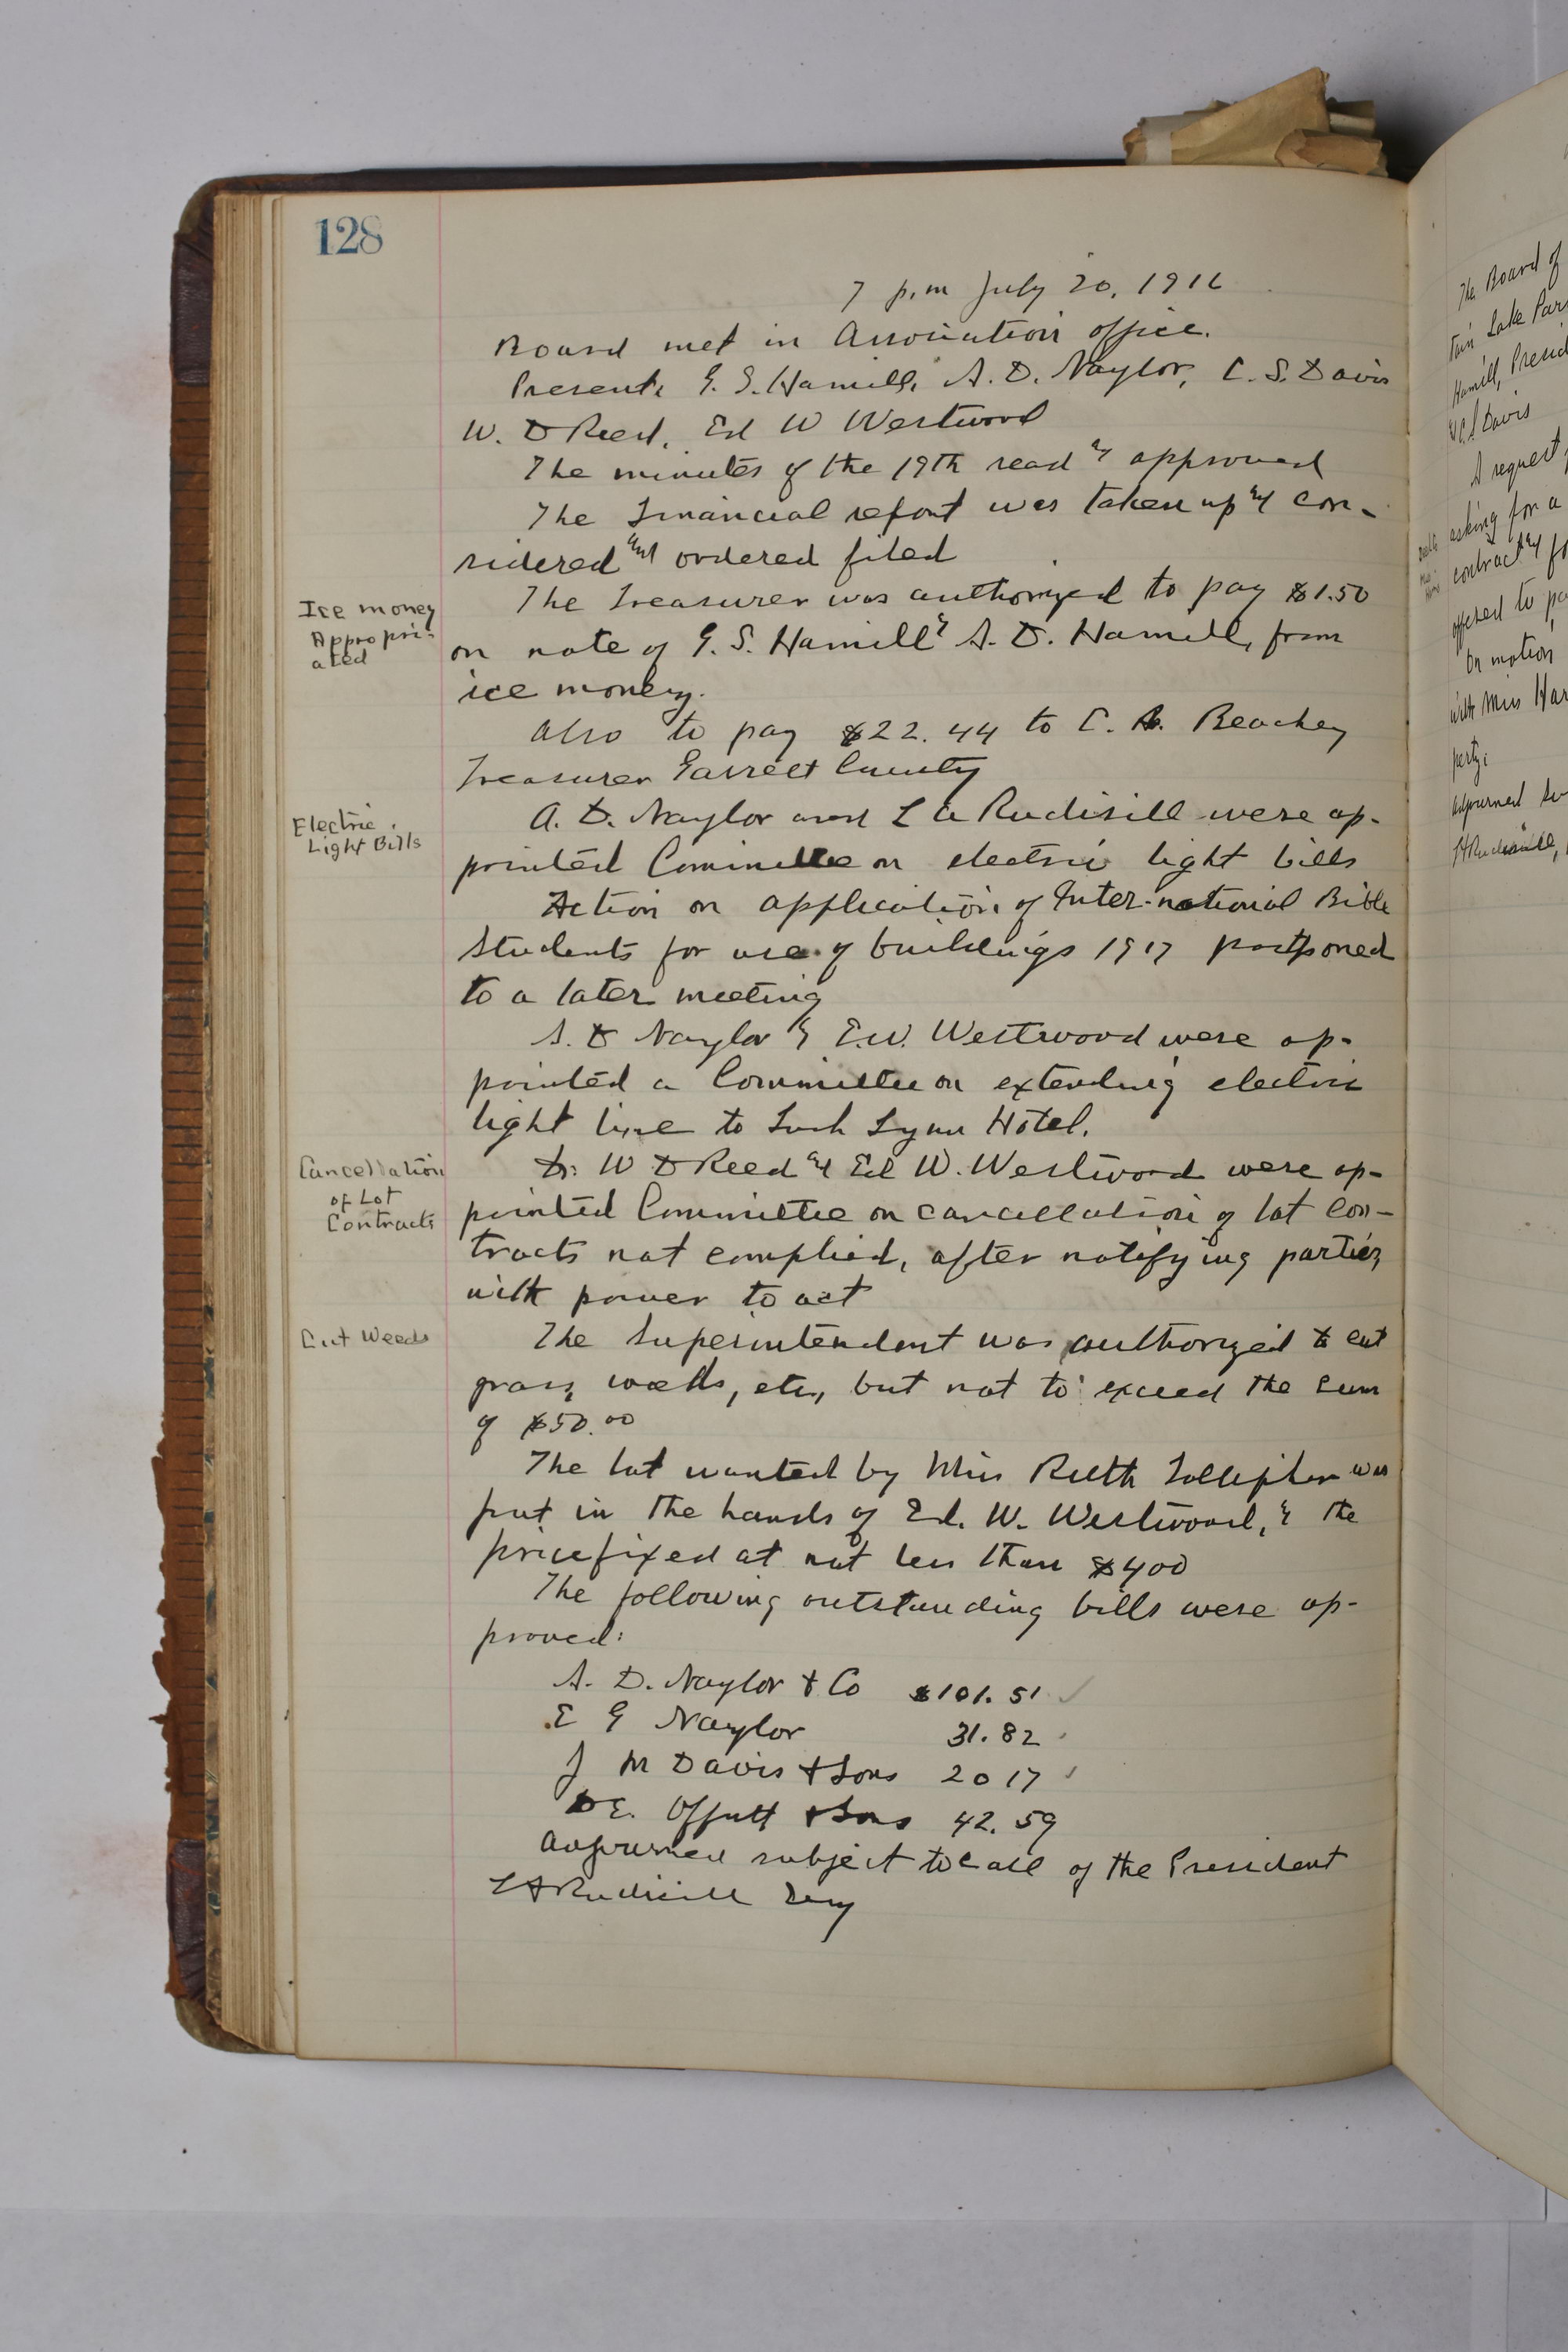 128
7 p.m July 20, 1916
Board met in Association office.
Present, G. S. Hamill, A. D. Naylor, C. S. Davis
W. D Reed, Ed W Westwood
The minutes of the 19th read & approved
The Financial report was taken up and con-
sidered and ordered filed
Ice money
Appropri-
ated
The Treasurer was authorized to pay $1.50
on note of G. S. Hamill & A. D. Hamill, from
ice money.
Also to pay $22.44 to C. A. Beachey
Treasurer Garrett County
Electric
Light Bills
A. D. Naylor and L A Rudisill were ap-
pointed Committee on electric light bills
Action on application of Inter-national Bible
Students for use of buildings 1917 postponed
to a later meeting
A. D Naylor & E.W. Westwood were ap-
pointed a Committee on extending electric
light line to Loch Lynn Hotel.
Cancellation
of Lot
Contracts
Dr W D Reed and Ed W. Westwood were ap-
pointed Committee on cancellation of lot con-
tracts not complied, after notifying parties,
with power to act
Cut Weeds
The Superintendent was authorized to cut
grass, weeds, etc, but not to exceed the sum
of $50.00
The lot wanted by Miss Ruth was
put in the hands of Ed. W. Westwood, & the
price fixed at not less than $400
The following outstanding bills were ap-
proved:
A. D. Naylor & Co $101.51 ✓
E G Naylor 31.82
J M Davis & Sons 20 17 ✓
D E. Offutt & Sons 42.59
Adjourned subject to call of the President
L A Rudisill Secy
The Board of
tain Lake Par
Hamill, Presid
& C S Davis
A request
asking for a
contract and
offered to pa
On motion
with Miss Har
party.
Adjourned
L A Rudisill,